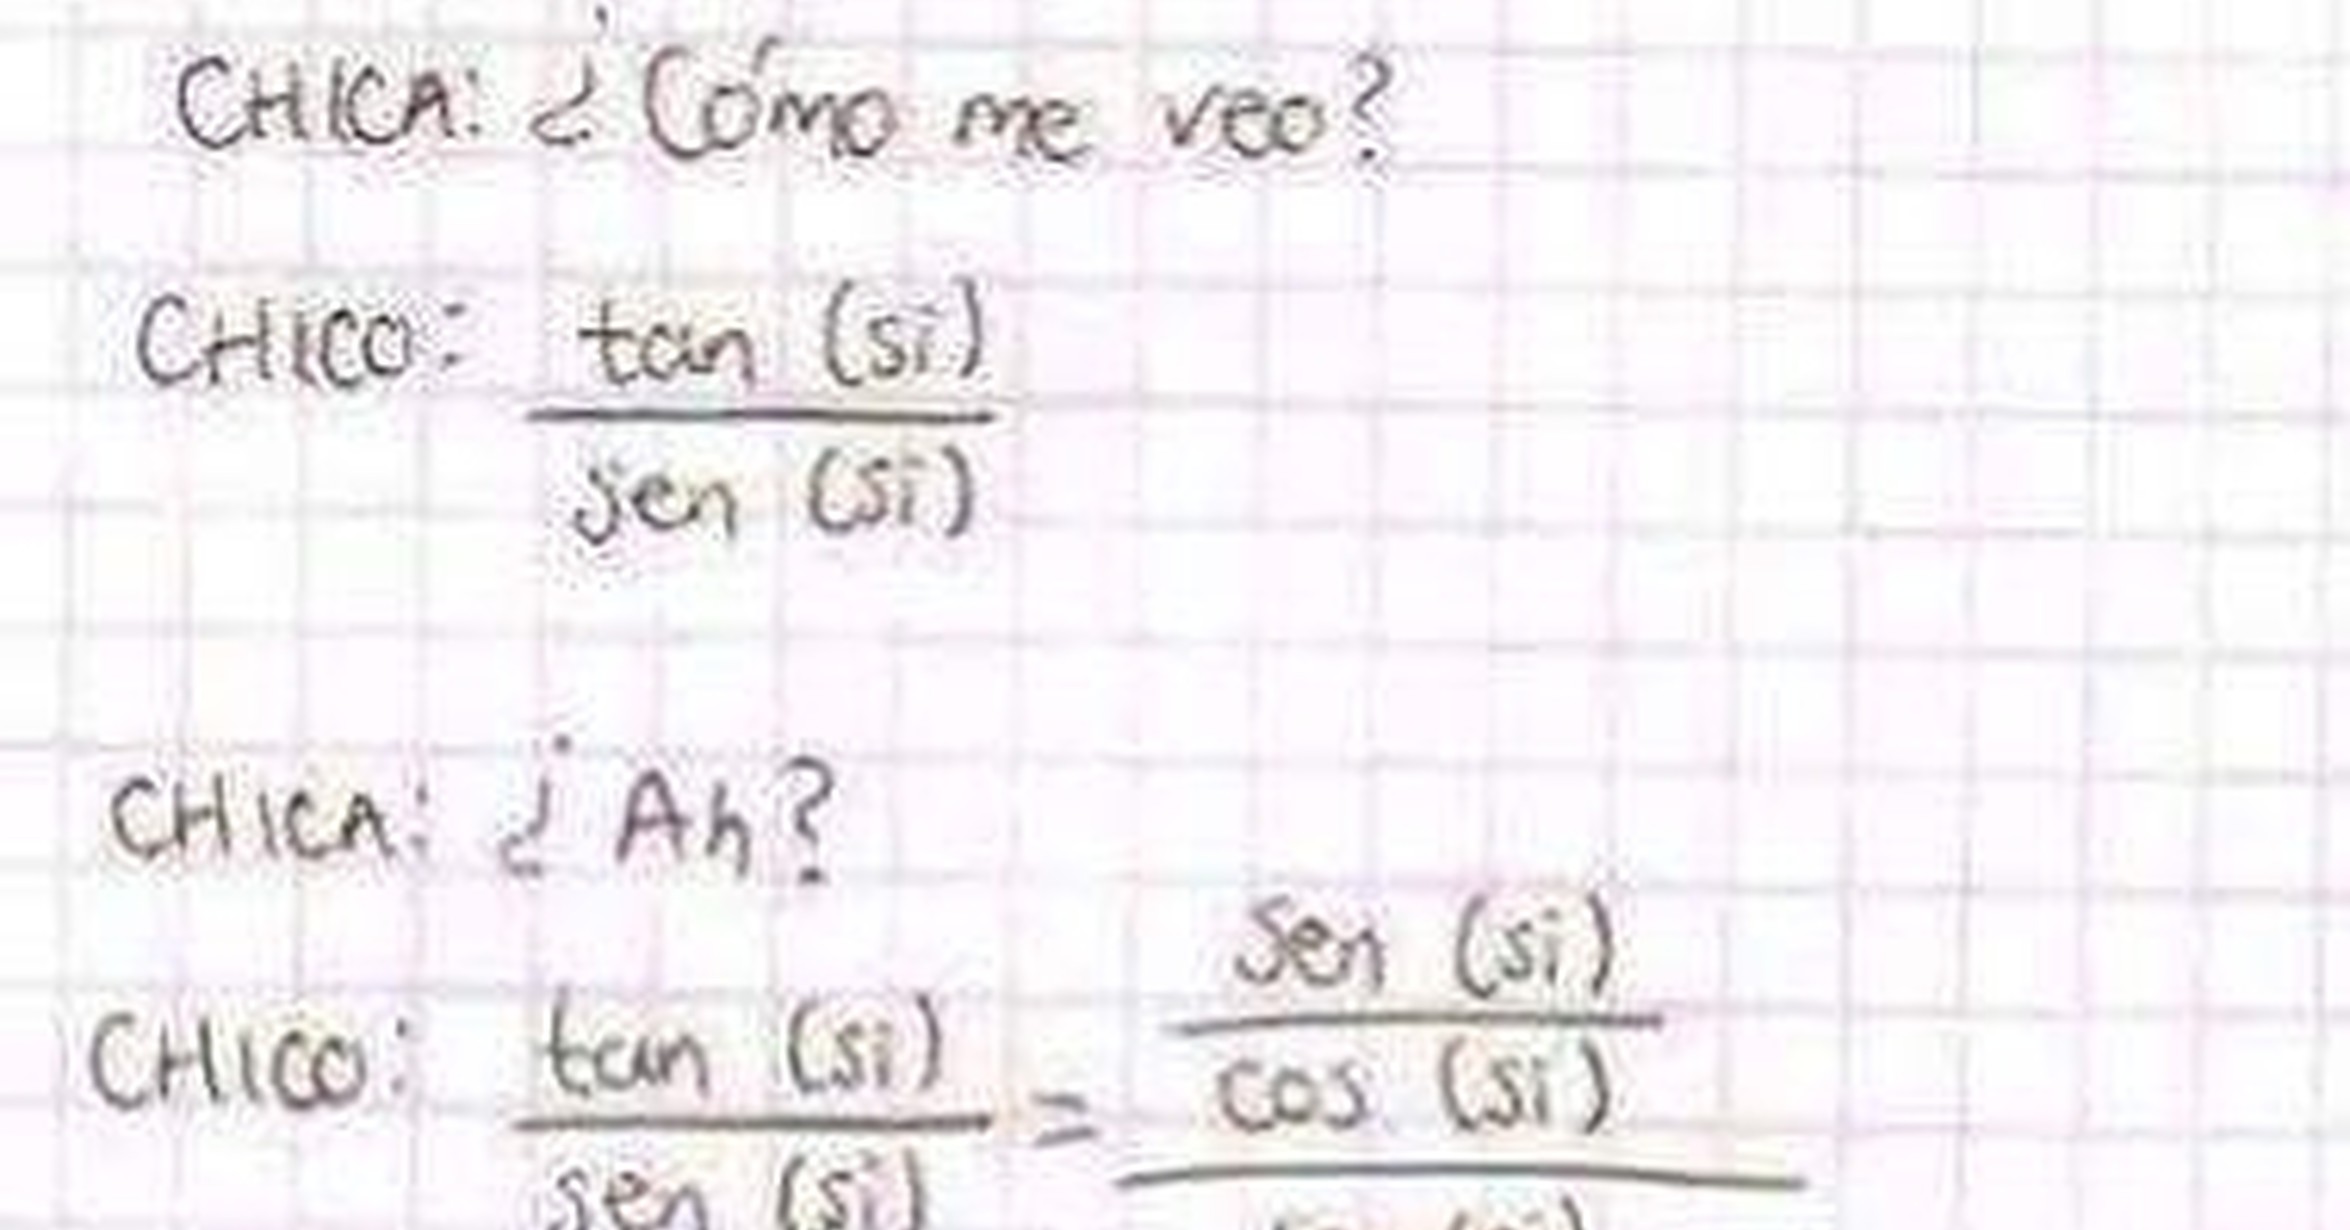 CHICA: ¿Cómo me veo?
CHICO: tan (si)
sen (si)
CHICA: ¿Ah?
sen (si)
CHICO: tan (si) = cos (si)
sen (si)